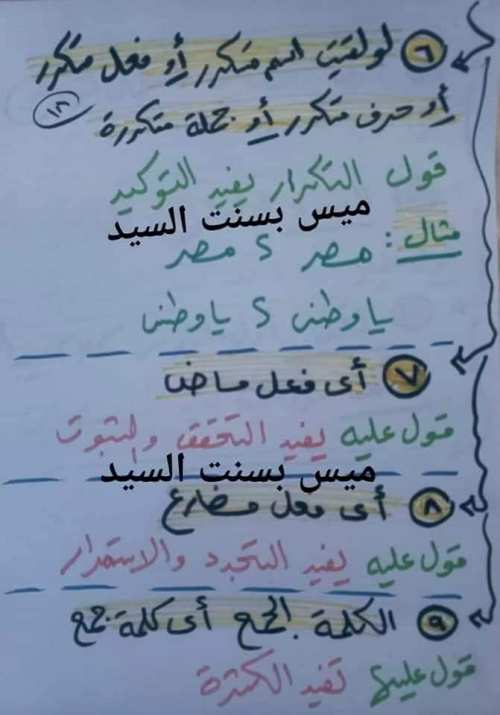 ٦ لو لقيت اسم متكرر أو فعل متكرر
أو حرف متكرر أو جملة متكررة
١٢
قول التكرار يفيد التوكيد
ميس بسنت السيد
مثال : مصر ؟ مصر
يا وطنى ؟ يا وطنى
٧ أى فعل ماضى
قول عليه يفيد التحقق والثبوت
ميس بسنت السيد
٨ أى فعل مضارع
قول عليه يفيد التجدد والاستمرار
٩ الكلمة الجمع أى كلمة جمع
قول عليها تفيد الكثرة